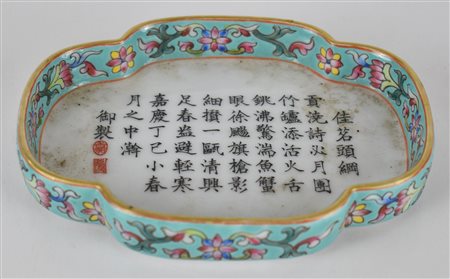 佳茗頭綱
貢澆詩必月團
竹罏添活火石
銚沸驚湍魚蟹
眼徐颺旗槍影
細攢一甌清興
足春盎避輕寒
嘉慶丁巳小春
月之中澣
御製